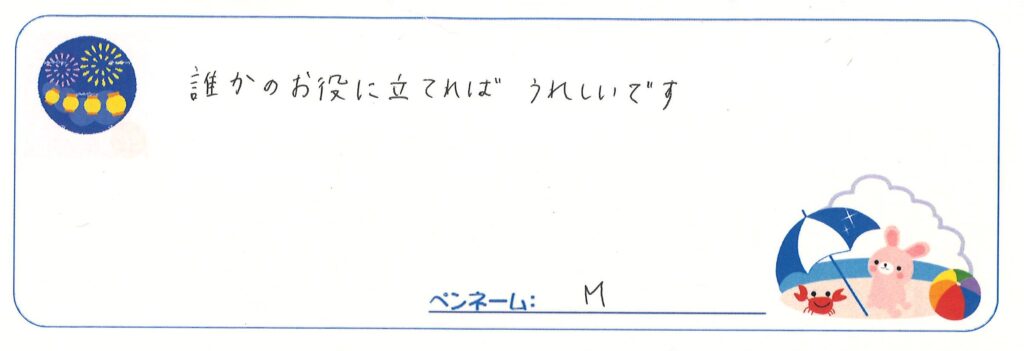 誰かのお役に立てれば うれしいです
ペンネーム: M